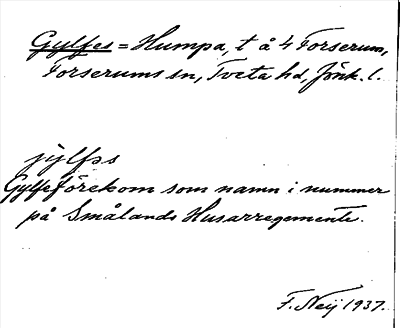 Gylfes = Humpa, t å 4 Forserum,
Forserums sn, Tveta hd, Jönk. l.
jylfss
Gylfe förekom som namn i nummer
på Smålands Husarregemente.
F. Neij 1937.